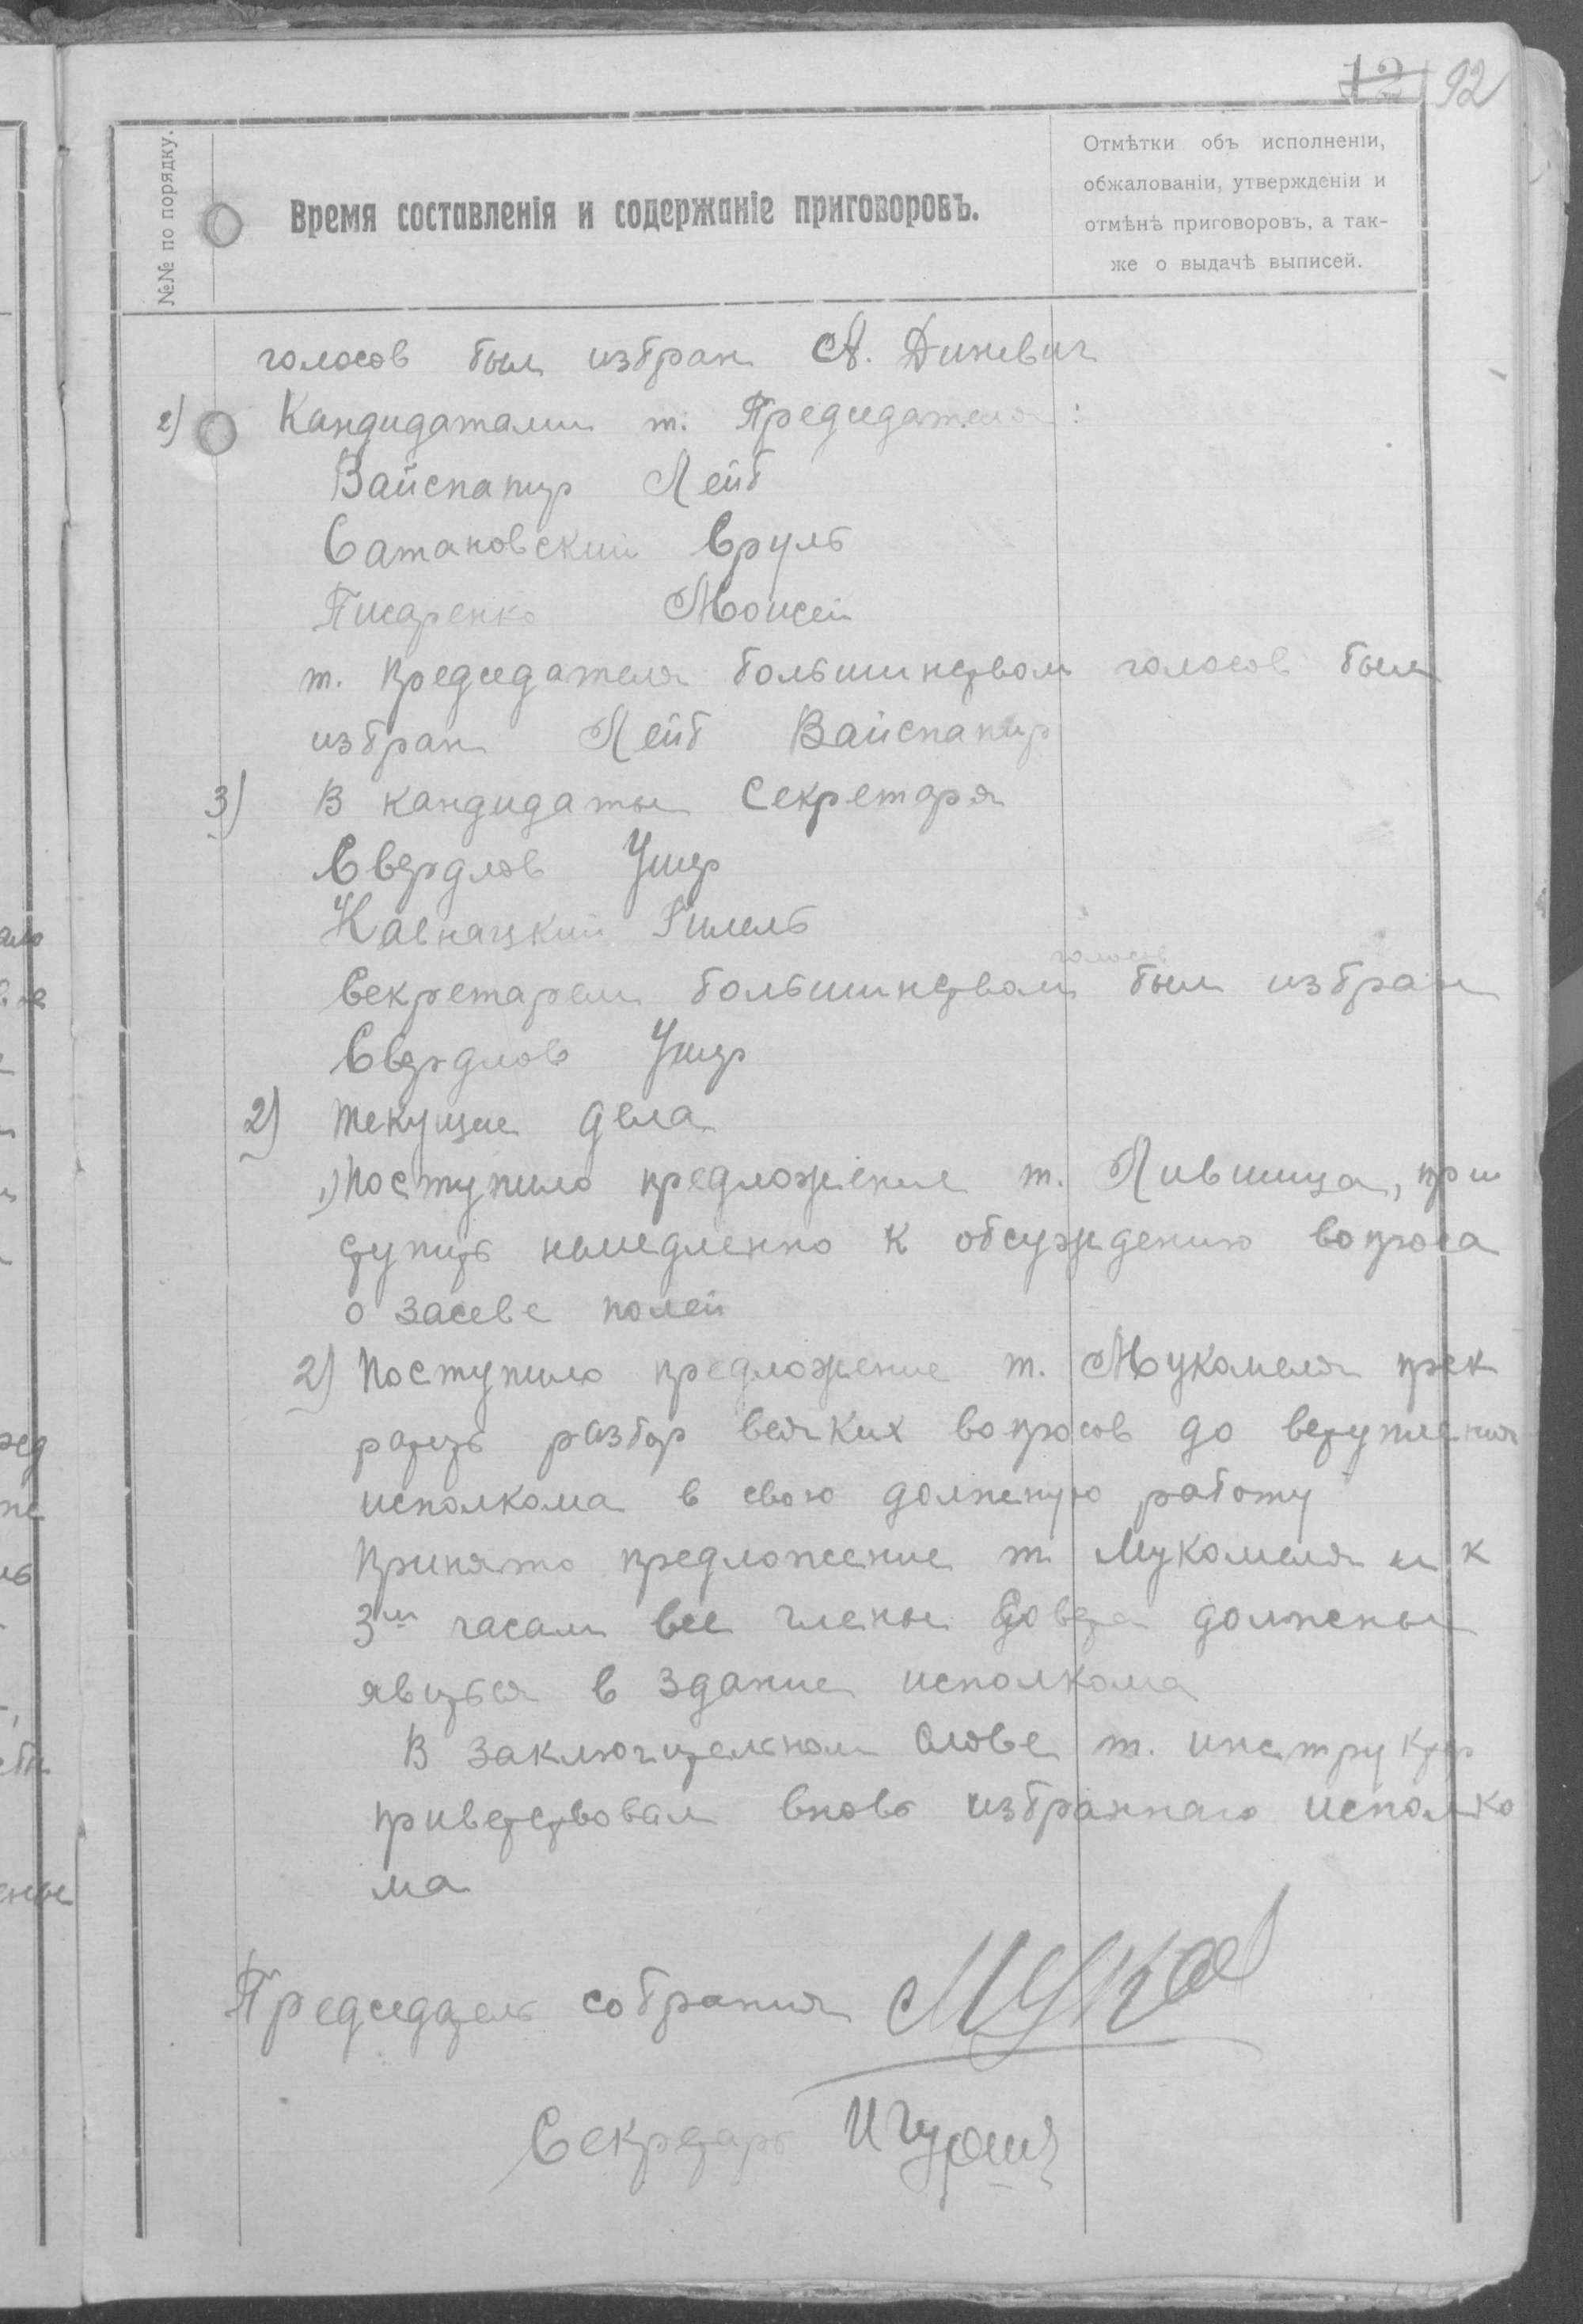 12 92
№№ по порядку.
Время составленія и содержаніе приговоровъ.
Отмѣтки объ исполненіи,
обжалованіи, утвержденіи и
отмѣнѣ приговоровъ, а так-
же о выдачѣ выписей.
голосов был избран А. Диневич
2) Кандидатами т. Председателя:
Вайспапир Лейб
Сатановский Сруль
Писаренко Моисей
т. председателя большинством голосов был
избран Лейб Вайспапир
3) В кандидаты Секретаря
Свердлов Ушер
Кавнацкий Гилель
голосов
Секретарем большинством был избран
Свердлов Ушер
2) Текущие дела
1) Поступило предложение т. Лившица, при
ступить немедленно к обсуждению вопроса
о засеве полей
2) Поступило предложение т. Мукомеля прек
ратить разбор всяких вопросов до вступления
исполкома в свою должную работу
Принято предложение т. Мукомеля и к
3м часам все члены Совета должены
явиться в здание исполкома
В заключительном слове т. инструктор
приветствовал вновь избраннаго исполко
ма
Председатель собрания Муком
Секретарь